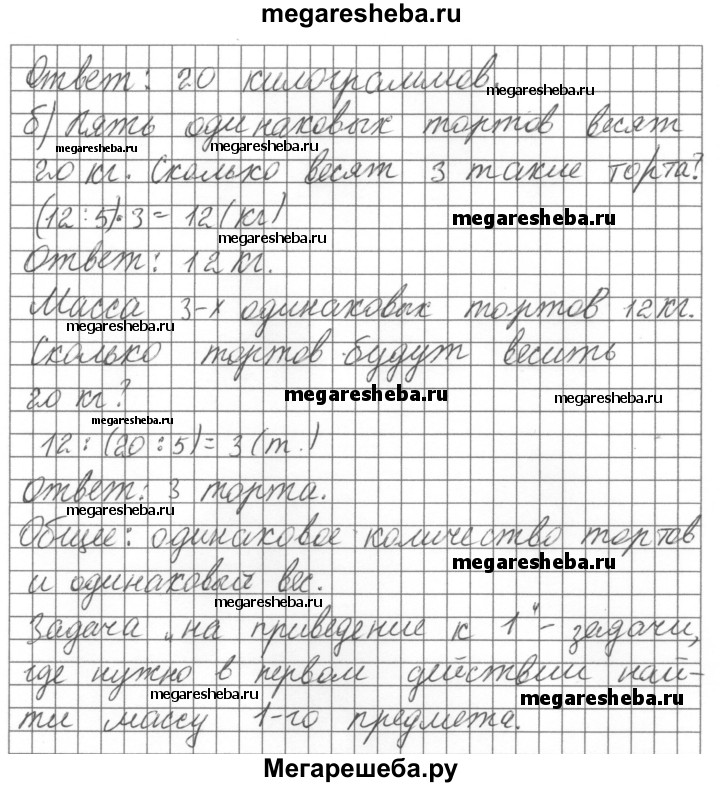 megaresheba.ru
Ответ: 20 килограммов.
megaresheba.ru
б) Пять одинаковых тортов весят
megaresheba.ru megaresheba.ru
20 кг. Сколько весят 3 такие торта?
(12:5)·3 = 12 (кг) megaresheba.ru
megaresheba.ru
Ответ: 12 кг.
Масса 3-х одинаковых тортов 12 кг.
megaresheba.ru
Сколько тортов будут весить
20 кг? megaresheba.ru megaresheba.ru
megaresheba.ru
12 : (20 : 5) = 3 (т.)
Ответ: 3 торта.
megaresheba.ru
Общее: одинаковое количество тортов
megaresheba.ru
и одинаковый вес.
megaresheba.ru
Задача „на приведение к 1" - задачи,
где нужно в первом действии най-
megaresheba.ru megaresheba.ru
ти массу 1-го предмета.
Мегарешеба.ру